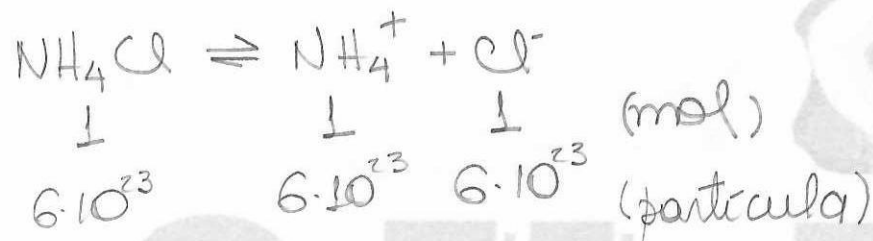 NH₄Cl ⇌ NH₄⁺ + Cl⁻
1 1 1 (mol)
6·10²³ 6·10²³ 6·10²³ (partícula)